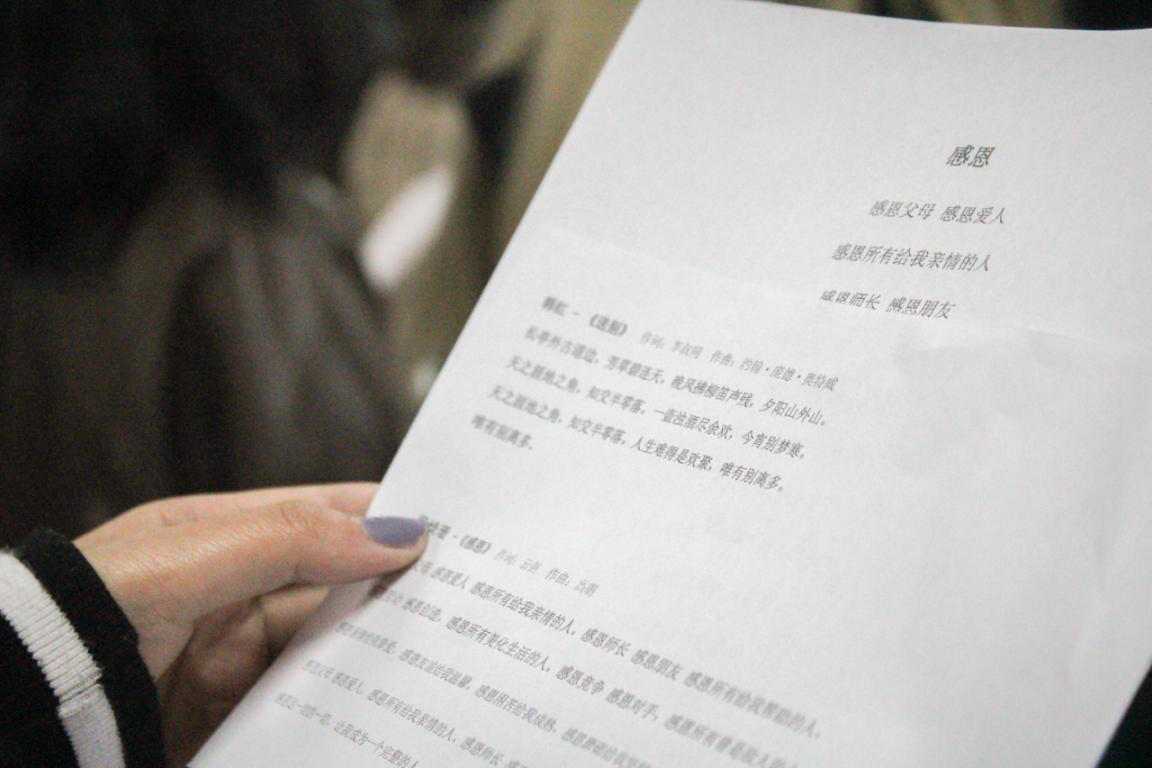 感恩
感恩父母 感恩爱人
感恩所有给我亲情的人
感恩师长 感恩朋友
韩红 - 《送别》 作词：李叔同 作曲：约翰·庞德·奥特威
长亭外古道边，芳草碧连天，晚风拂柳笛声残，夕阳山外山。
天之涯地之角，知交半零落，一壶浊酒尽余欢，今宵别梦寒。
天之涯地之角，知交半零落，人生难得是欢聚，唯有别离多。
唯有别离多。
-《感恩》 作词：云剑 作曲：
感恩爱人 感恩所有给我亲情的人，感恩师长 感恩朋友 感恩所有给我帮助的人，
感恩创造，感恩所有美化生活的人，感恩竞争 感恩对手，感恩所有曾是敌人的
感恩友谊给我温馨，感恩困苦给我成熟，感恩磨砺给我坚
感恩爱人，感恩所有给我亲情的人，感恩师长
让我成为一个完整的人